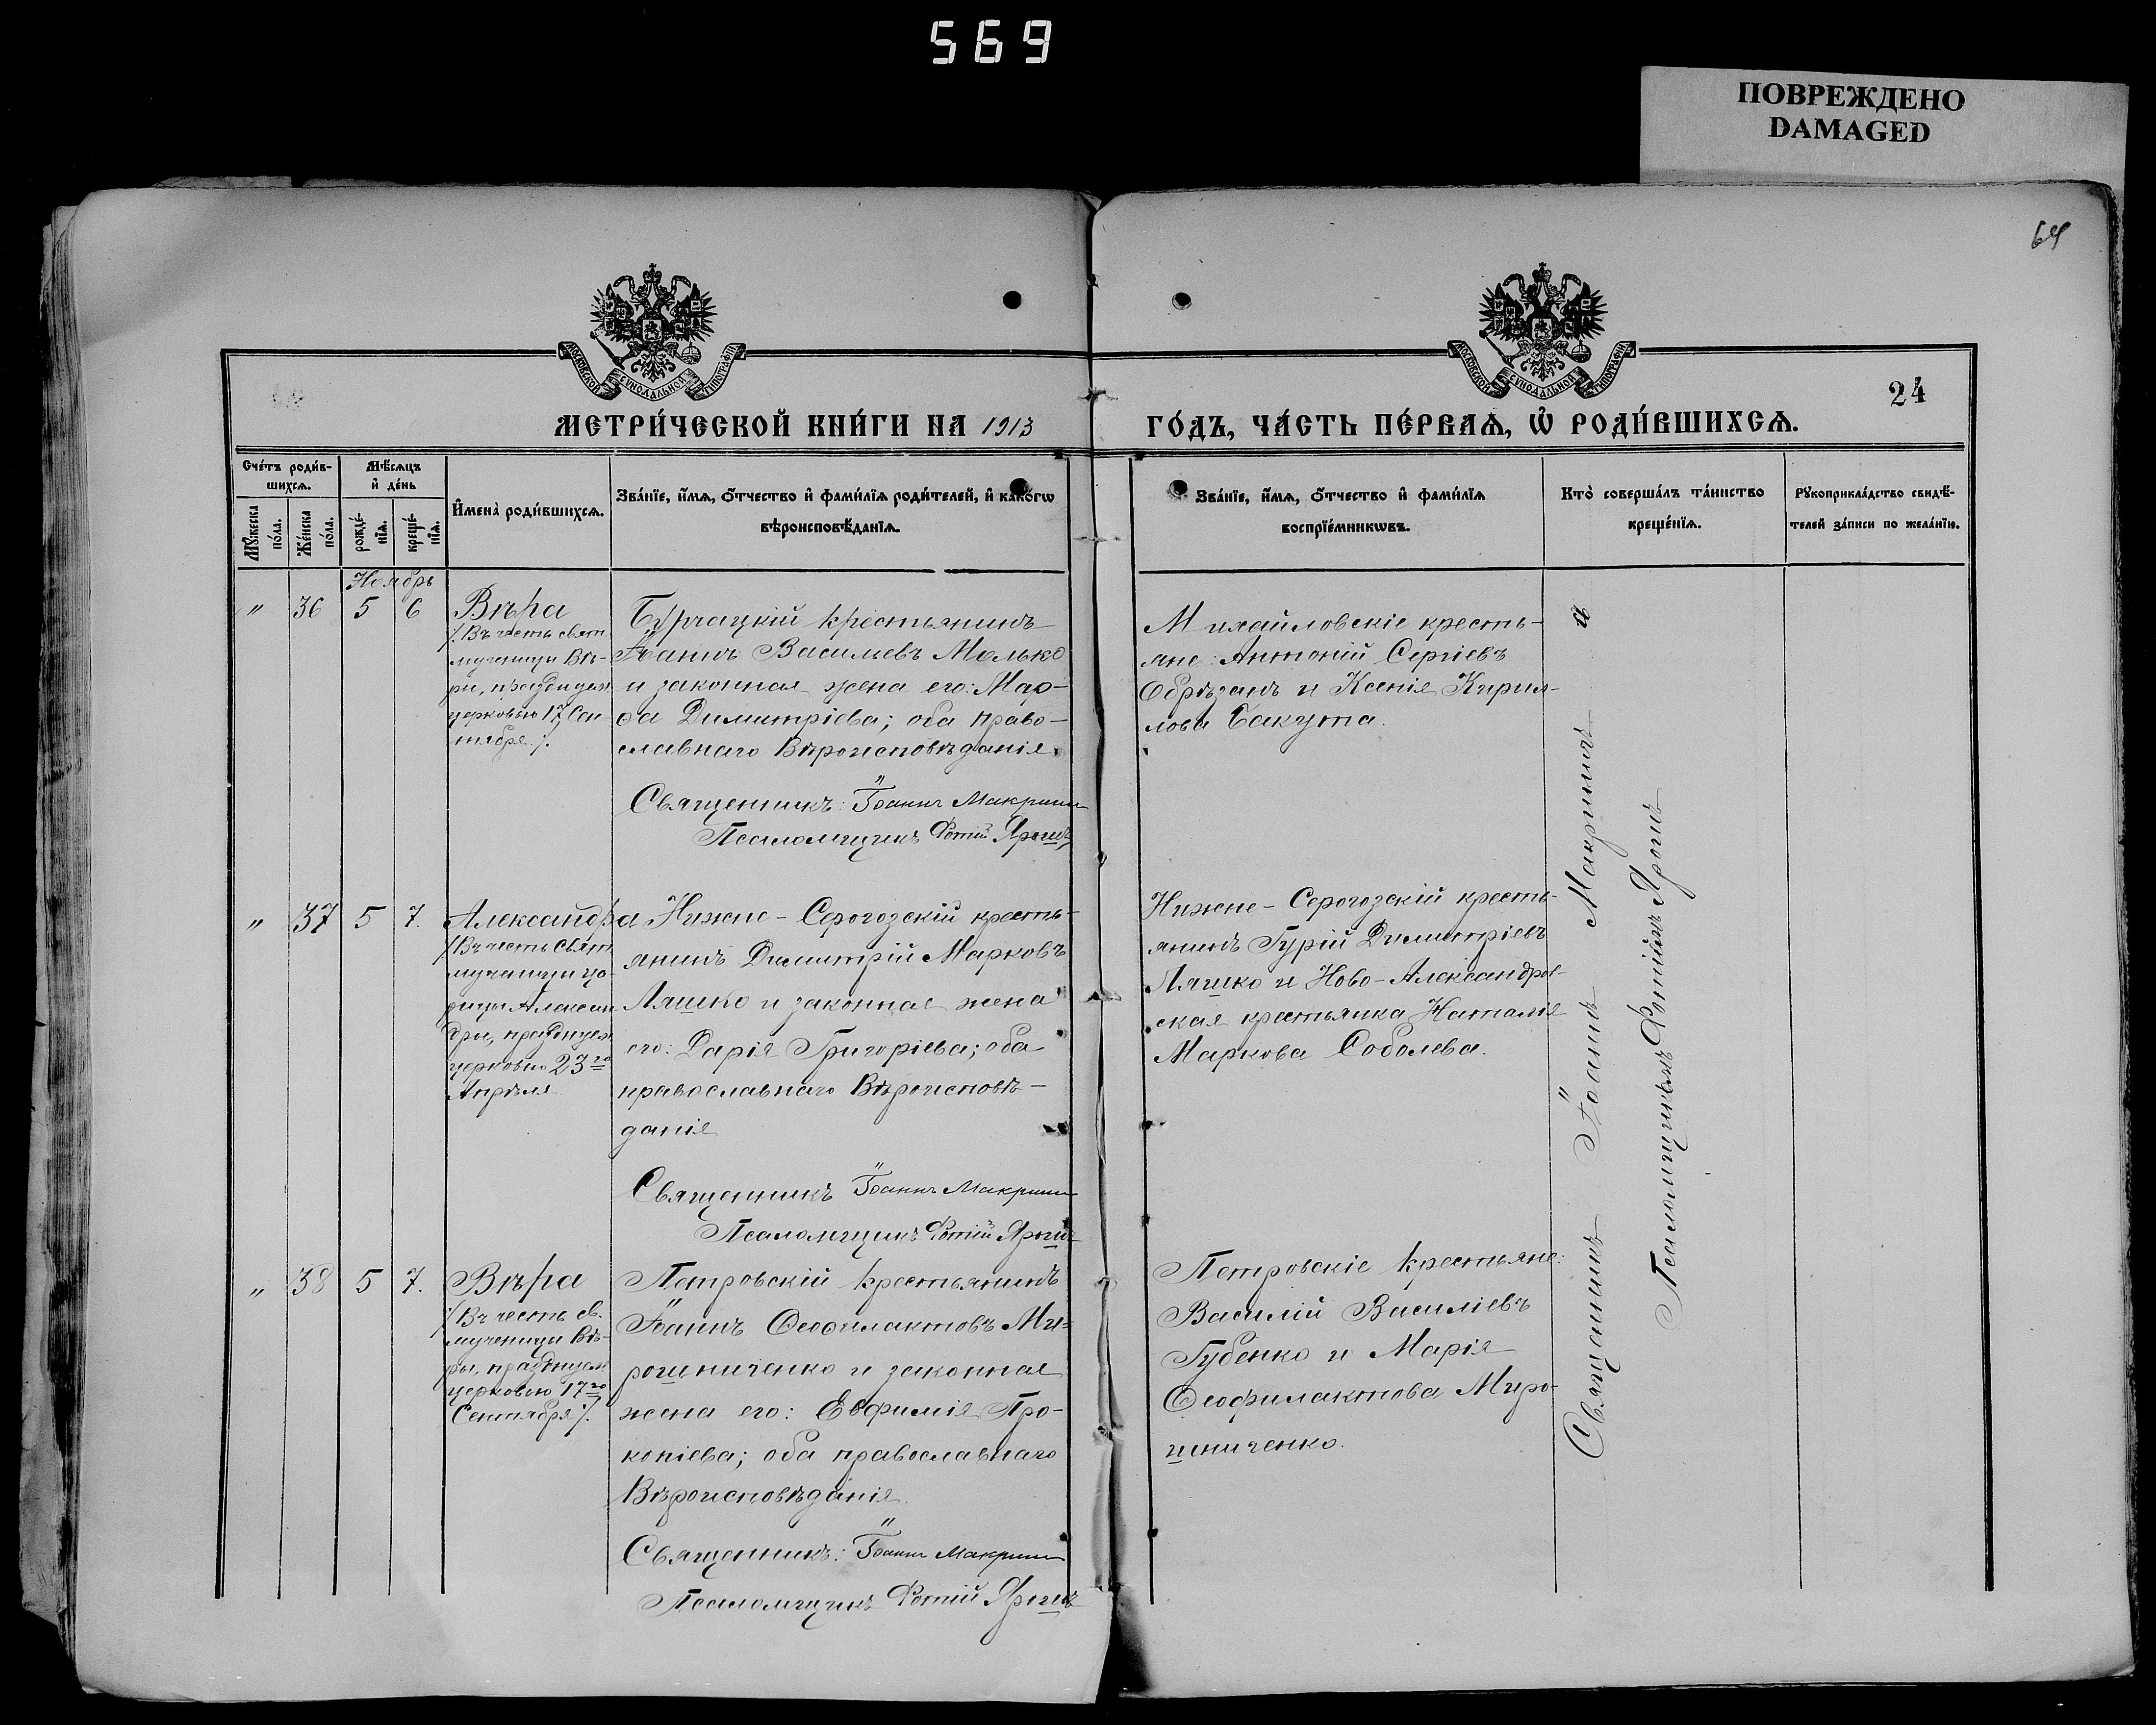 569
ПОВРЕЖДЕНО
DAMAGED
64
МОСКОВСКОЙ СѴНОДАЛЬНОЙ ТИПОГРАФІИ
МОСКОВСКОЙ СѴНОДАЛЬНОЙ ТИПОГРАФІИ
24
МЕТРИ́ЧЕСКОЙ КНИ́ГИ НА 1913
ГО́ДЪ, ЧА́СТЬ ПЕ́РВАѦ, Ѡ҆ РОДИ́ВШИХСѦ.
Сче́тъ роди́в-
шихсѧ.
Мѣ́сѧцъ
и҆ де́нь
Мꙋ́жеска
по́ла.
Же́нска
по́ла.
рожде́-
нїѧ.
креще́-
нїѧ.
И҆мена̀ роди́вшихсѧ.
Зва́нїе, и҆́мѧ, ѻ҆́тчество и҆ фами́лїѧ роди́телей, и҆ како́гѡ
вѣроисповѣ́данїѧ.
Зва́нїе, и҆́мѧ, ѻ҆́тчество и҆ фами́лїѧ
воспрїе́мникѡвъ.
Кто̀ соверша́лъ та́инство
креще́нїѧ.
Рꙋкоприкла́дство свидѣ́-
телей за́писи по жела́нїю.
Ноябрь
" 36 5 6 Вѣра
/. Въ честь свят.
мученицы Вѣ-
ры, празднуем
церковью 17 Сен-
тября ./.
Бурчацкій крестьянинъ
Іоаннъ Васильевъ Молько
и законная жена его: Мар-
ѳа Димитріева; оба право-
славнаго Вѣроисповѣданія.
Священникъ: Іоаннъ Макрини
Псаломщикъ Фотій Ярошъ
Михайловскіе кресть-
яне: Антоній Сергіевъ
Обрѣзанъ и Ксенія Кирил-
лова Бакута.
" 37 5 7. Александра
/. Въ честь Свят.
мученицы ца-
рицы Алексан
дры, празднуем
церковью 23го
Апрѣля
Нижне-Серогозскій кресть-
янинъ Димитрій Марковъ
Ляшко и законная жена
его: Дарія Григоріева; оба
православнаго Вѣроисповѣ-
данія
Священникъ Іоаннъ Макрини
Псаломщикъ Фотій Ярошъ
Нижне-Серогозскій кресть-
янинъ Гурій Димитріевъ
Ляшко и Ново-Александров-
ская крестьянка Наталія
Маркова Соболева.
" 38 5 7. Вѣра
/. Въ честь св.
мученицы Вѣ-
ры, празднуем
церковью 17го
Сентября ./.
Петровскій крестьянинъ
Іоаннъ Ѳеофилактовъ Ми-
рошниченко и законная
жена его: Евфимія Про-
копіева; оба православнаго
Вѣроисповѣданія
Священникъ: Іоаннъ Макрини
Псаломщикъ Фотій Ярошъ
Петровскіе крестьяне:
Василій Василіевъ
Губенко и Марія
Ѳеофилактова Миро-
шниченко.
Священникъ Іоаннъ Макрини
Псаломщикъ Фотій Ярошъ